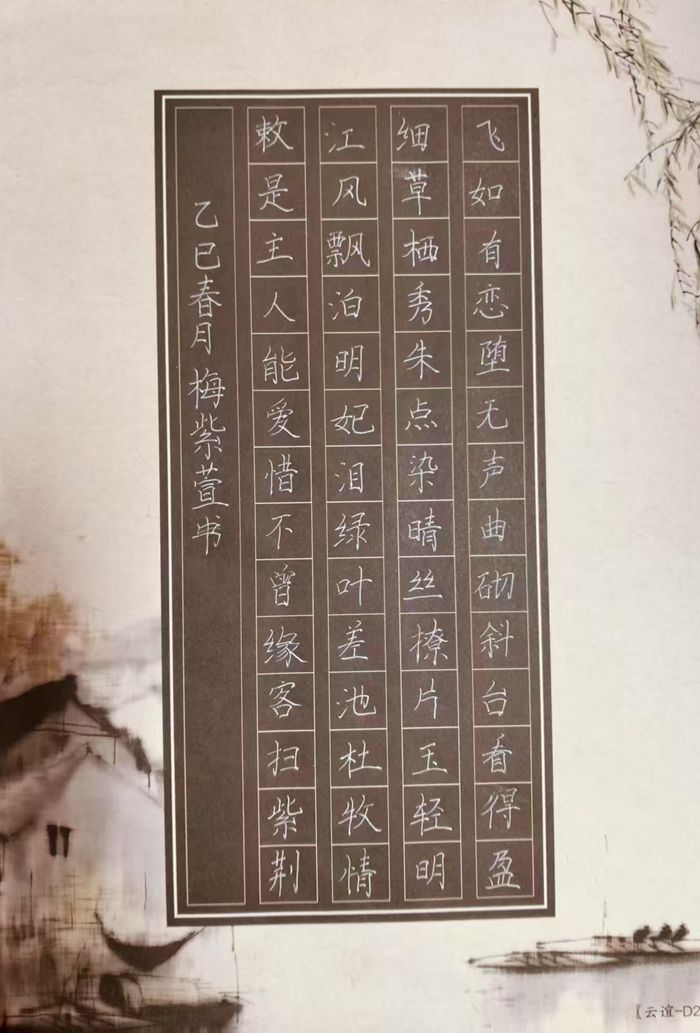 飞如有恋堕无声曲砌斜台看得盈
细草栖秀朱点染晴丝撩片玉轻明
江风飘泊明妃泪绿叶差池杜牧情
敕是主人能爱惜不曾缘客扫紫荆
乙巳春月梅紫萱书
〖云谊-D2